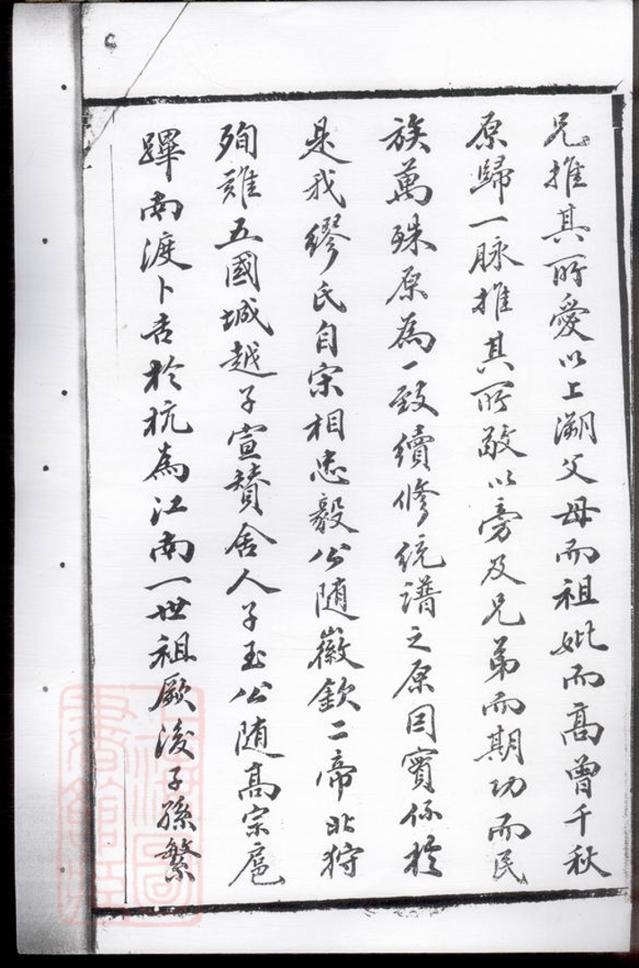 兄推其所愛以上溯父母而祖妣而高曾千秋
原歸一脉推其所敬以旁及兄弟而期功而民
族萬殊原為一致續修統譜之原因實係於
是我繆氏自宋相忠毅公随徽欽二帝北狩
殉難五國城越子宣贊舍人子玉公随高宗扈
蹕南渡卜吉於杭為江南一世祖厥後子孫繁
上海圖
書館藏